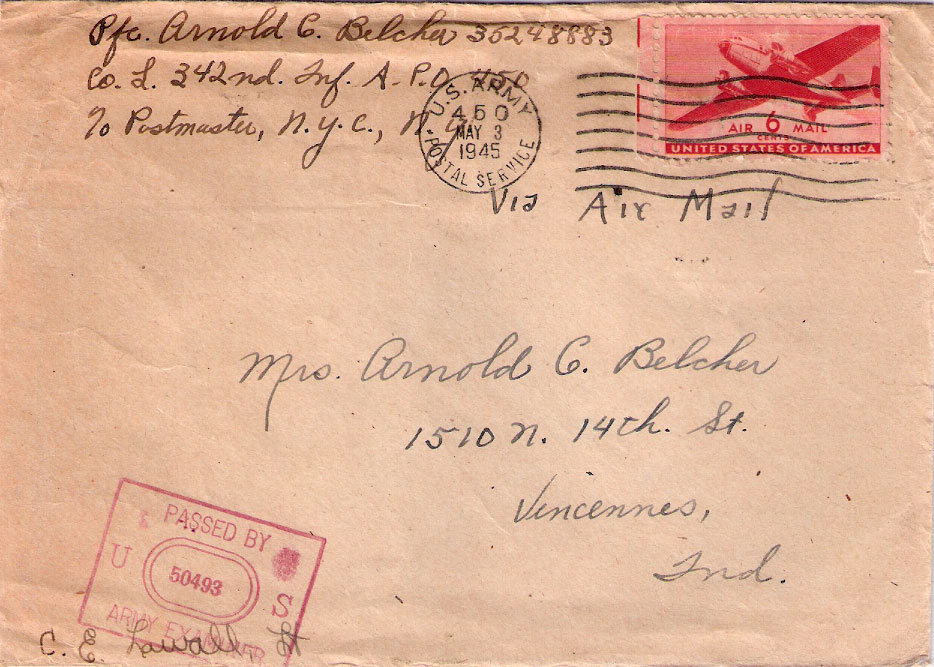 Pfc. Arnold C. Belcher 35248883
Co. L. 342nd. Inf. A.P.O. 450
℅ Postmaster, N.Y.C., N.Y.
U.S. ARMY
450
MAY 3
1945
POSTAL SERVICE
AIR 6 MAIL
CENTS
UNITED STATES OF AMERICA
Via Air Mail
Mrs. Arnold C. Belcher
1510 N. 14th. St.
Vincennes,
Ind.
PASSED BY
U 50493 S
ARMY EXAMINER
C. E. Lawall, Lt